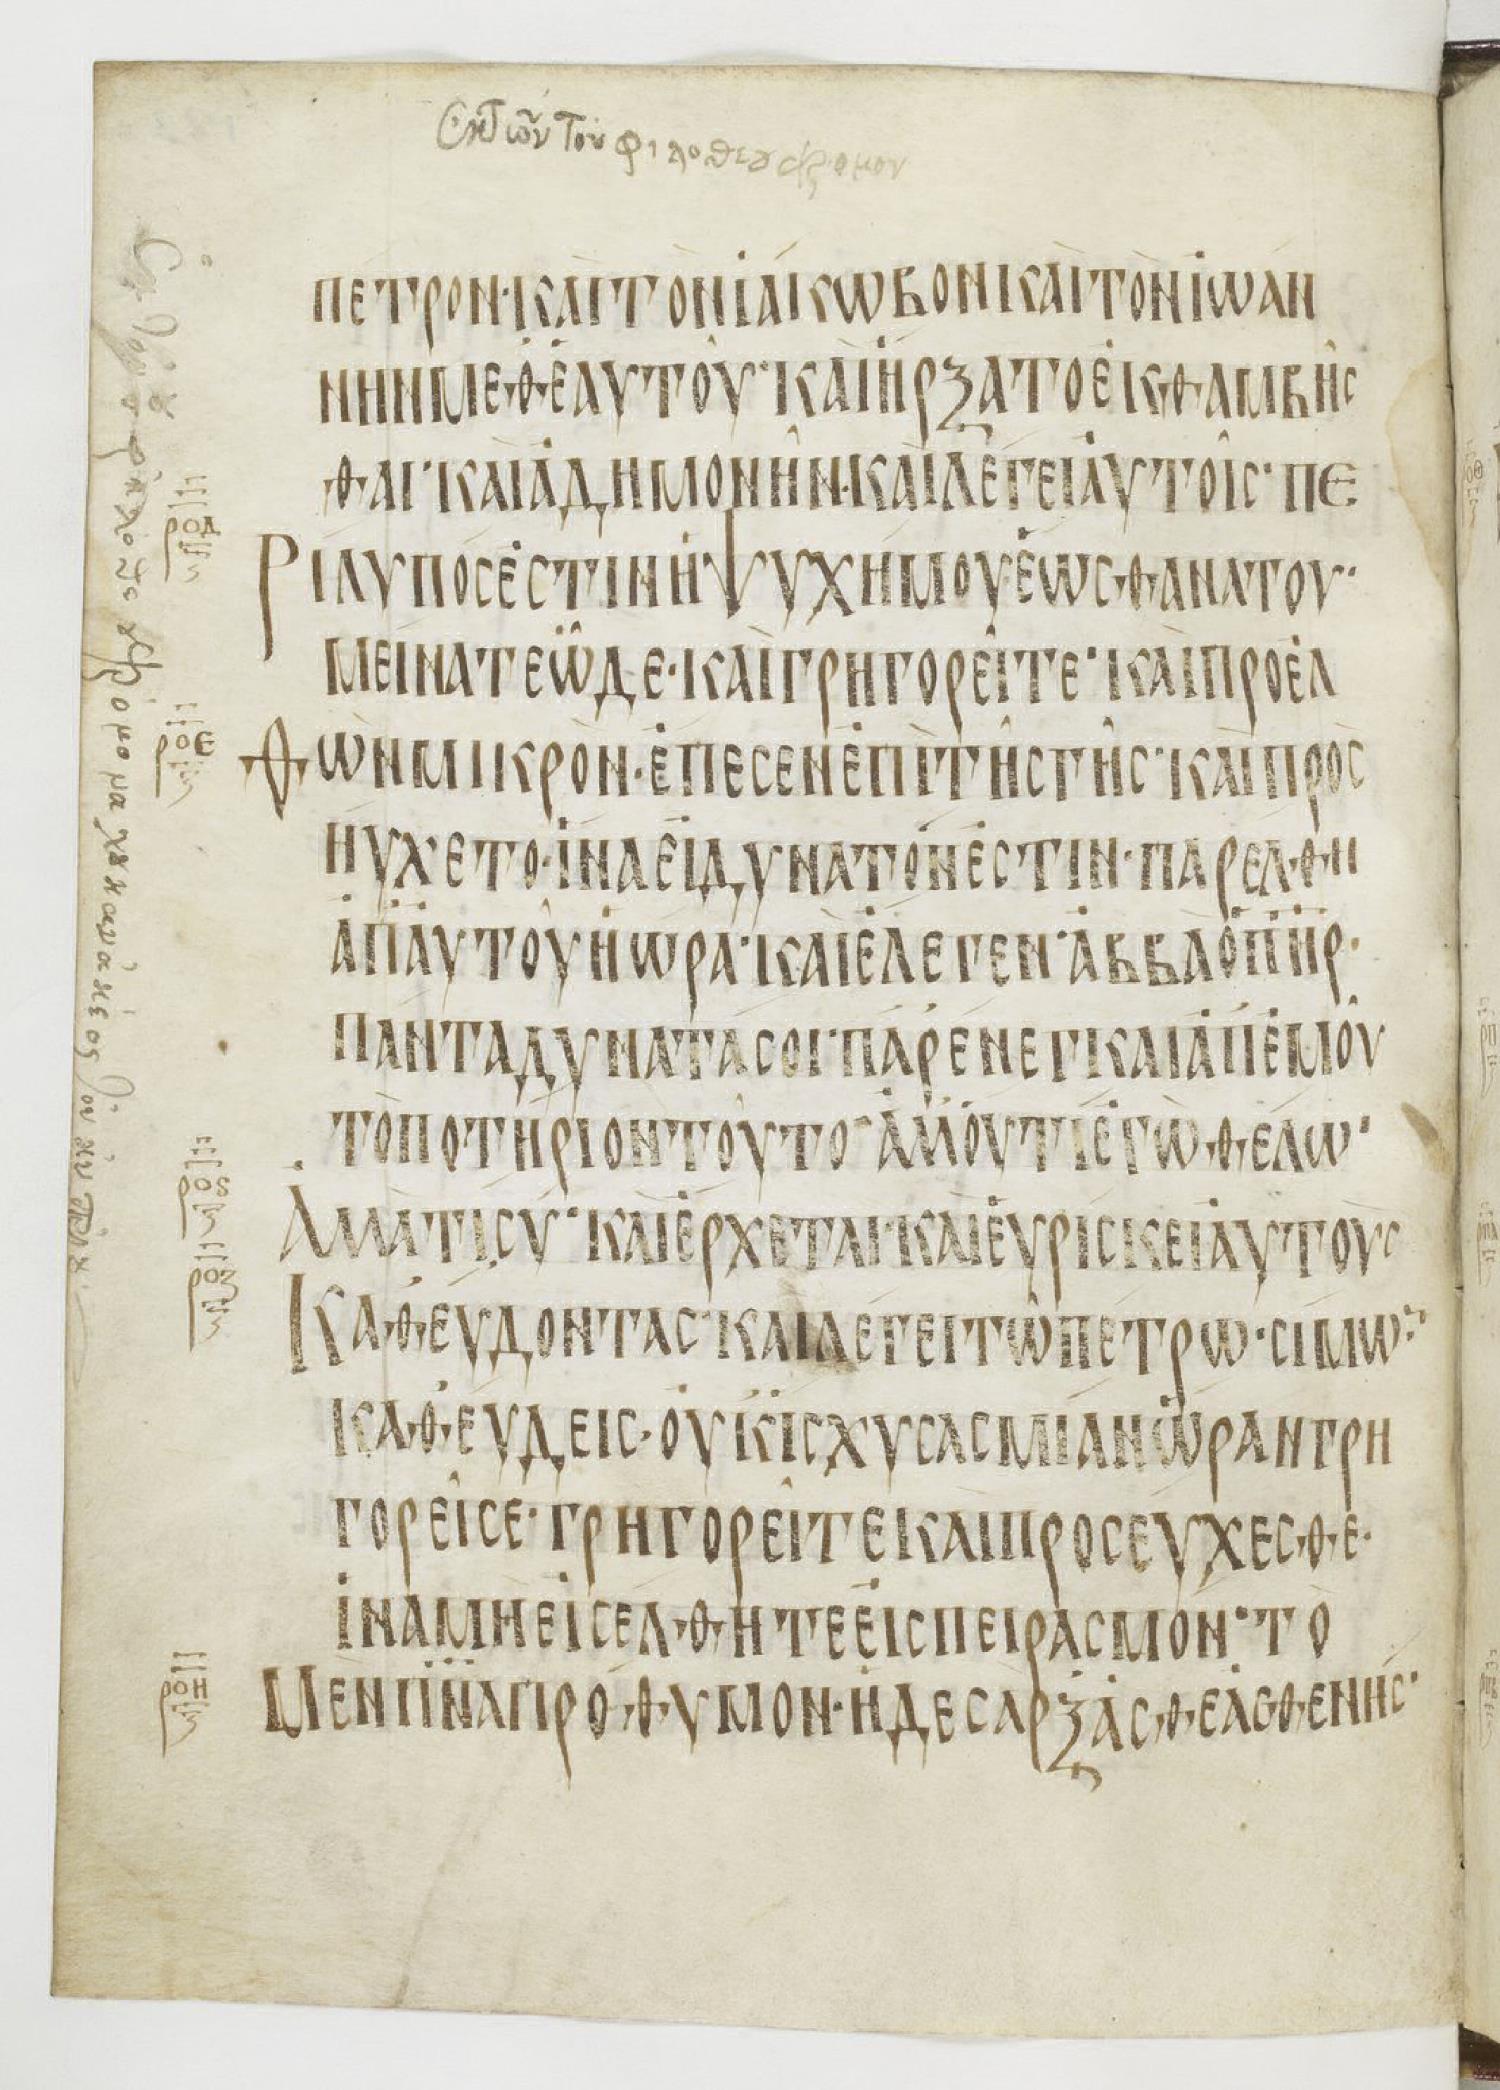 ἐκ τῶν τοῦ φιλοθέου
ΠΕΤΡΟΝ·ΚΑΙΤΟΝΙΑΚΩΒΟΝΚΑΙΤΟΝΙΩΑΝ
ΝΗΝΜΕΘΕΑΥΤΟΥ·ΚΑΙΗΡΞΑΤΟΕΚΘΑΜΒΗС
ΘΑΙ·ΚΑΙΑΔΗΜΟΝΗΝ·ΚΑΙΛΕΓΕΙΑΥΤΟΙС·ΠΕ
ΡΟΔ
ΡΙΛΥΠΟСΕСΤΙΝΗΨΥΧΗΜΟΥΕΩСΘΑΝΑΤΟΥ·
ΜΕΙΝΑΤΕΩΔΕ·ΚΑΙΓΡΗΓΟΡΕΙΤΕ·ΚΑΙΠΡΟΕΛ
ΡΟΕ
ΘΩΝΜΙΚΡΟΝ·ΕΠΕСΕΝΕΠΙΤΗСΓΗС·ΚΑΙΠΡΟС
ΗΥΧΕΤΟ·ΙΝΑΕΙΔΥΝΑΤΟΝΕСΤΙΝ·ΠΑΡΕΛΘΗ
ΑΠΑΥΤΟΥΗΩΡΑ·ΚΑΙΕΛΕΓΕΝ·ΑΒΒΑΟΠΗΡ·
ΠΑΝΤΑΔΥΝΑΤΑСΟΙ·ΠΑΡΕΝΕΓΚΑΙΑΠΕΜΟΥ
ΤΟΠΟΤΗΡΙΟΝΤΟΥΤΟ·ΑΛΛΟΥΤΙΕΓΩΘΕΛΩ·
ΡΟS
ΑΛΛΑΤΙСΥ·ΚΑΙΕΡΧΕΤΑΙ·ΚΑΙΕΥΡΙСΚΕΙΑΥΤΟΥС
ΡΟΖ
ΚΑΘΕΥΔΟΝΤΑС·ΚΑΙΛΕΓΕΙΤΩΠΕΤΡΩ·СΙΜΩ
ΚΑΘΕΥΔΕΙС·ΟΥΚΙСΧΥСΑСΜΙΑΝΩΡΑΝΓΡΗ
ΓΟΡΕΙСΕ·ΓΡΗΓΟΡΕΙΤΕΚΑΙΠΡΟСΕΥΧΕСΘΕ·
ΙΝΑΜΗΕΙСΕΛΘΗΤΕΕΙСΠΕΙΡΑСΜΟΝ·ΤΟ
ΡΟΗ
ΜΕΝΠΝΑΠΡΟΘΥΜΟΝ·ΗΔΕСΑΡΞΑСΘΕΑСΘΕΝΗС·